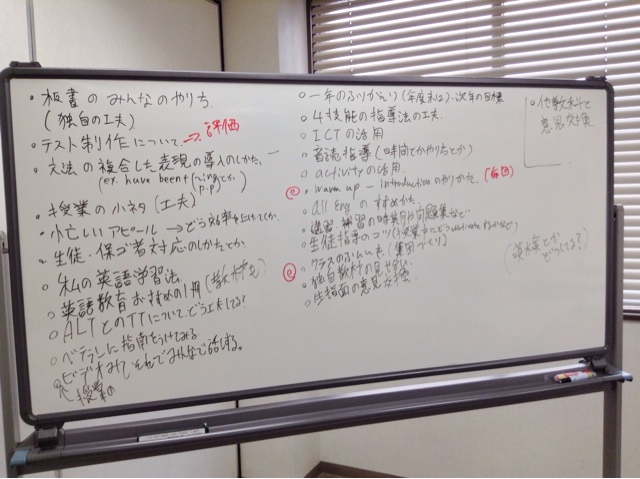 ・板書のみんなのやり方
(独自の工夫)
・テスト制作について → 評価
・文法の複合した表現の導入のしかた
(ex. have been + (~ingとか p.p)
・授業の小ネタ (工夫)
・忙しいアピール → どう効率を上げてくか
・生徒・保ゴ者対応のしかたとか
・私の英語学習法
・英語教育おすすめの1冊 (教材も)
・ALTとのTTについて、どう工夫してる?
・ベテランに指南をうけてみる
・ビデオみて、それでみんなで話しする。
授業の
・一年のふりかえり (年度末は)・次年の目標
・4技能の指導法の工夫
・ICTの活用
・音読指導 (時間とかやり方とか)
・activityの活用
・warm up - introductionのやりかた (毎回)
・All Eng のすすめかた
・練習の時間や問題集など
・生徒指導のコツ
・クラスのふんいき (集団づくり)
・独自教材の見せ合い
・生指面の意見交換
・他教科と
意見交換
どうしてる?)